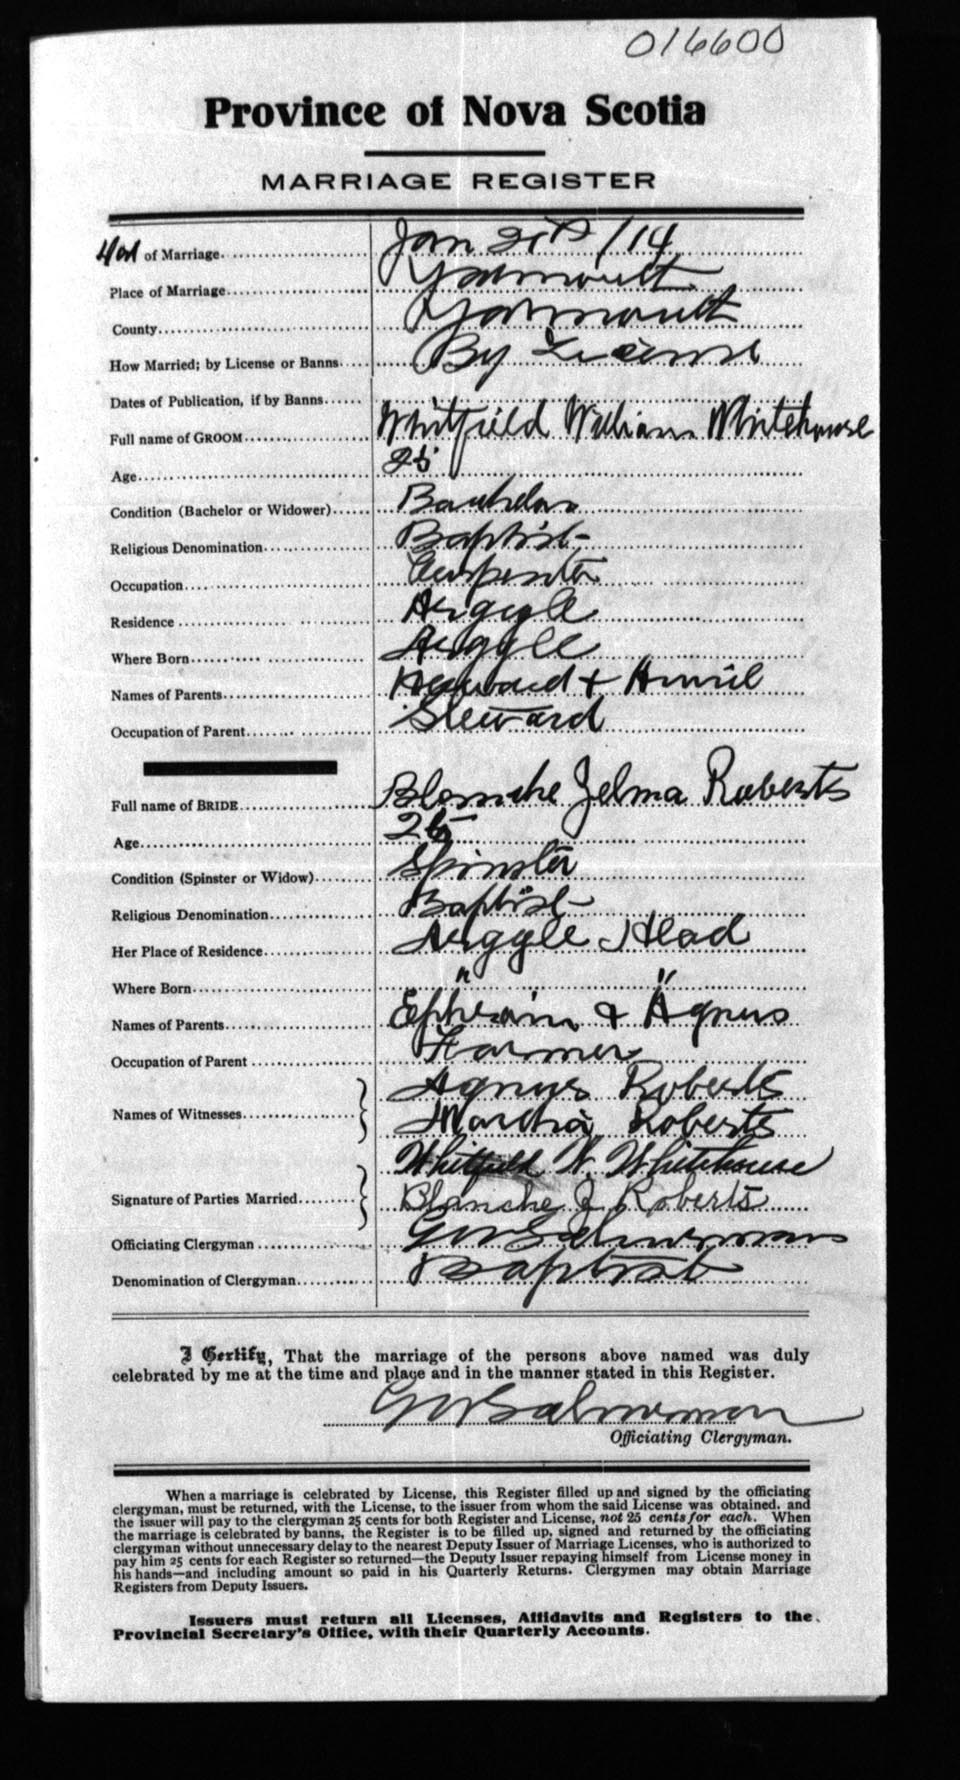 016600
Province of Nova Scotia
MARRIAGE REGISTER
of Marriage Jan 21st /14
Place of Marriage Yarmouth
County Yarmouth
How Married; by License or Banns By License
Dates of Publication, if by Banns
Full name of GROOM Whitfield William Whitehouse
Age 25
Condition (Bachelor or Widower) Bachelor
Religious Denomination Baptist
Occupation Carpenter
Residence Argyle
Where Born Argyle
Names of Parents Howard + Annie
Occupation of Parent Steward
Full name of BRIDE Blanche Zelma Roberts
Age
Condition (Spinster or Widow) Spinster
Religious Denomination Baptist
Her Place of Residence Argyle Head
Where Born " "
Names of Parents Ephraim & Agnus
Occupation of Parent Farmer
Names of Witnesses Agnus Roberts
Martha Roberts
Signature of Parties Married Whitfield W. Whitehouse
Blanche Z Roberts
Officiating Clergyman
Denomination of Clergyman Baptist
I Certify, That the marriage of the persons above named was duly
celebrated by me at the time and place and in the manner stated in this Register.
Officiating Clergyman.
When a marriage is celebrated by License, this Register filled up and signed by the officiating
clergyman, must be returned, with the License, to the issuer from whom the said License was obtained, and
the issuer will pay to the clergyman 25 cents for both Register and License, not 25 cents for each. When
the marriage is celebrated by banns, the Register is to be filled up, signed and returned by the officiating
clergyman without unnecessary delay to the nearest Deputy Issuer of Marriage Licenses, who is authorized to
pay him 25 cents for each Register so returned—the Deputy Issuer repaying himself from License money in
his hands—and including amount so paid in his Quarterly Returns. Clergymen may obtain Marriage
Registers from Deputy Issuers.
Issuers must return all Licenses, Affidavits and Registers to the
Provincial Secretary's Office, with their Quarterly Accounts.